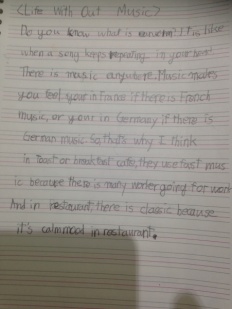 <Life With Out Music>
Do you know what is earworm? It is like
when a song keeps repeating in your head
There is music anywhere. Music makes
you feel your in France if there is French
music, or your in Germany if there is
German music. So, that's why I think
in Toast or breakfast cafe, they use fast mus
ic because there is many worker going for work
And in restaurant, there is classic because
it's calm mood in restaurant.